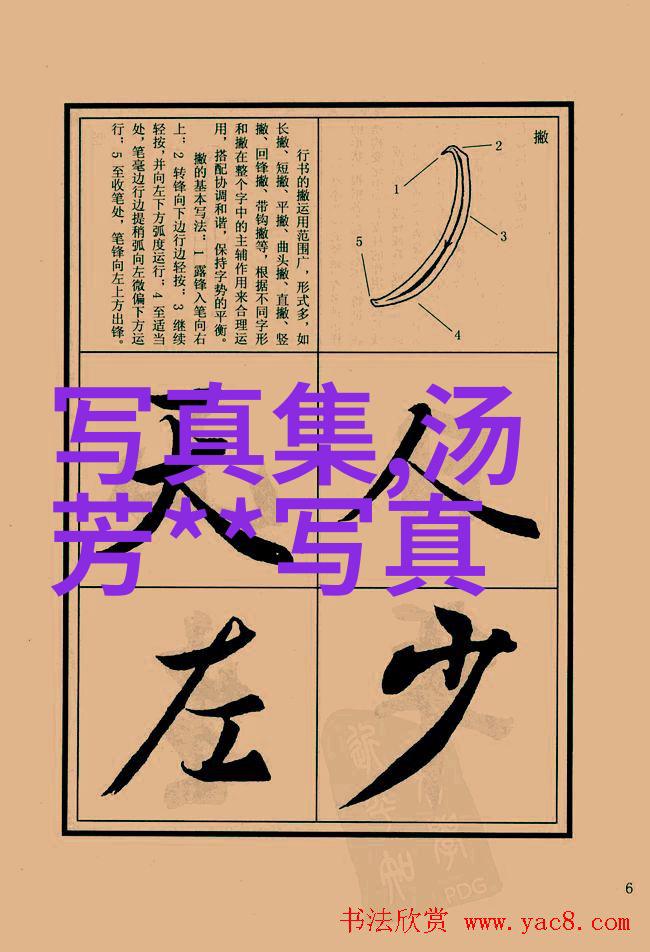 撇
1
2
3
4
5
行书的撇运用范围广，形式多，如
长撇、短撇、平撇、曲头撇、直撇、竖
撇、回锋撇、带钩撇等，根据不同字形
和撇在整个字中的主辅作用来合理运
用，搭配协调和谐，保持字势的平衡。
撇的基本写法：1 露锋入笔向右
上；2 转锋向下边行边轻按；3 继续
轻按，并向左下方弧度运行；4 至适当
处，笔毫边行边提稍弧向左微偏下方运
行；5 至收笔处，笔锋向左上方出锋。
写真集,汤
芳**写真
人
天
少
左
PDG
6
书法欣赏 www.yac8.com